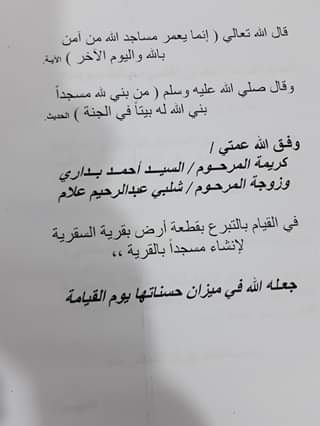 قال الله تعالي ( إنما يعمر مساجد الله من آمن
بالله واليوم الآخر ) الآية.
وقال صلي الله عليه وسلم ( من بني لله مسجداً
بني الله له بيتاً في الجنة ) الحديث.
وفـق الله عمتي /
كريمة المرحـوم / السيـد أحمـد بـداري
وزوجة المرحـوم / شلبي عبدالرحيم علام
في القيام بالتبرع بقطعة أرض بقرية السقرية
لإنشاء مسجداً بالقرية ،،
جعله الله في ميزان حسناتها يوم القيامة